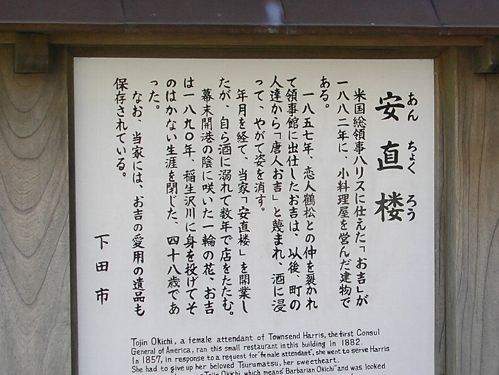 安直楼
あん ちょく ろう
米国総領事ハリスに仕えた「お吉」が
一八八二年に、小料理屋を営んだ建物で
ある。
一八五七年、恋人鶴松との仲を裂かれ
て領事館に出仕したお吉は、以後、町の
人達から「唐人お吉」と蔑まれ、酒に浸
って、やがて姿を消す。
年月を経て、当家「安直楼」を開業し
たが、自ら酒に溺れて数年で店をたたむ。
幕末開港の陰に咲いた一輪の花、お吉
は一八九〇年、稲生沢川に身を投げてそ
のはかない生涯を閉じた、四十八歳であ
った。
なお、当家には、お吉の愛用の遺品も
保存されている。
下田市
Tojin Okichi, a female attendant of Townsend Harris, the first Consul
General of America, ran this small restaurant in this building in 1882.
In 1857, in response to a request for "female attendant", she went to serve Harris
She had to give up her beloved Tsurumatsu, her sweetheart.
"Tojin Okichi" which means "Barbarian Okichi" and was looked